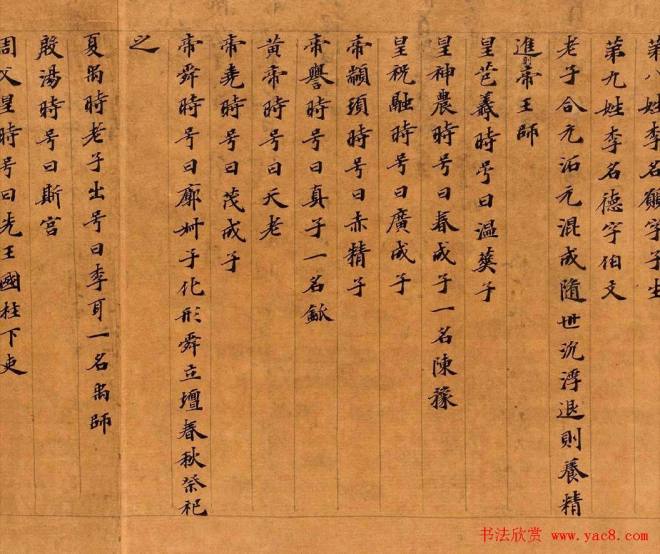 第八姓李名願字子生
第九姓李名德字伯文
老子合元沰元混成隨世沉浮退則養精
進則帝王師
皇苞羲時号曰温蓢子
皇神農時号曰春成子一名陳豫
皇祝融時号曰廣成子
帝顓頊時号曰赤精子
帝嚳時号曰真子一名
黄帝時号曰天老
帝堯時号曰茂成子
帝舜時号曰廓州子化形舜立壇春秋祭祀
之
夏禹時老子出号曰李耳一名禹師
殷湯時号曰斯宫
周父皇時号曰先王國柱下吏
书法欣赏 www.yac8.com